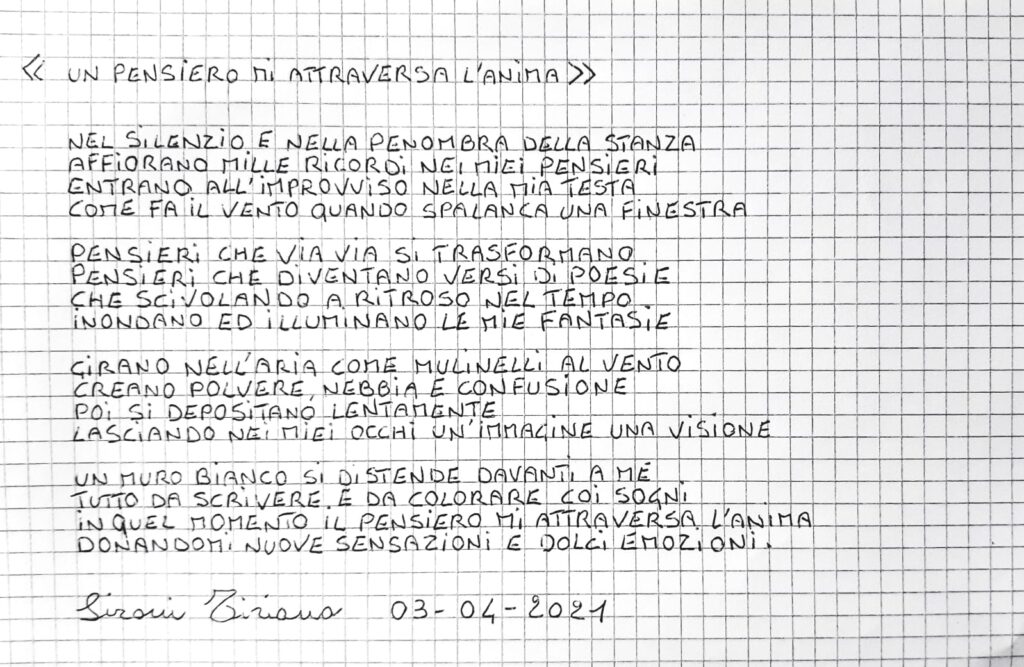 « UN PENSIERO MI ATTRAVERSA L'ANIMA »
NEL SILENZIO E NELLA PENOMBRA DELLA STANZA
AFFIORANO MILLE RICORDI NEI MIEI PENSIERI
ENTRANO ALL'IMPROVVISO NELLA MIA TESTA
COME FA IL VENTO QUANDO SPALANCA UNA FINESTRA
PENSIERI CHE VIA VIA SI TRASFORMANO
PENSIERI CHE DIVENTANO VERSI DI POESIE
CHE SCIVOLANDO A RITROSO NEL TEMPO
INONDANO ED ILLUMINANO LE MIE FANTASIE
GIRANO NELL'ARIA COME MULINELLI AL VENTO
CREANO POLVERE, NEBBIA E CONFUSIONE
POI SI DEPOSITANO LENTAMENTE
LASCIANDO NEI MIEI OCCHI UN'IMMAGINE UNA VISIONE
UN MURO BIANCO SI DISTENDE DAVANTI A ME
TUTTO DA SCRIVERE E DA COLORARE COI SOGNI
IN QUEL MOMENTO IL PENSIERO MI ATTRAVERSA L'ANIMA
DONANDOMI NUOVE SENSAZIONI E DOLCI EMOZIONI.
Sironi Tiziano 03-04-2021